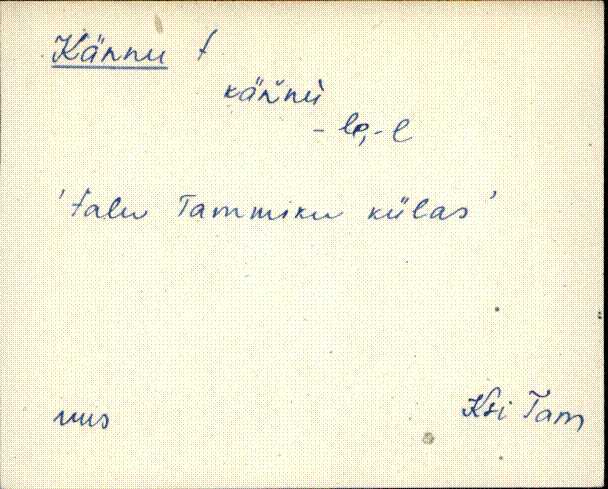 Kännu t
kännu
-le, -l
'talu Tammiku külas'
uus
Ksi Tam